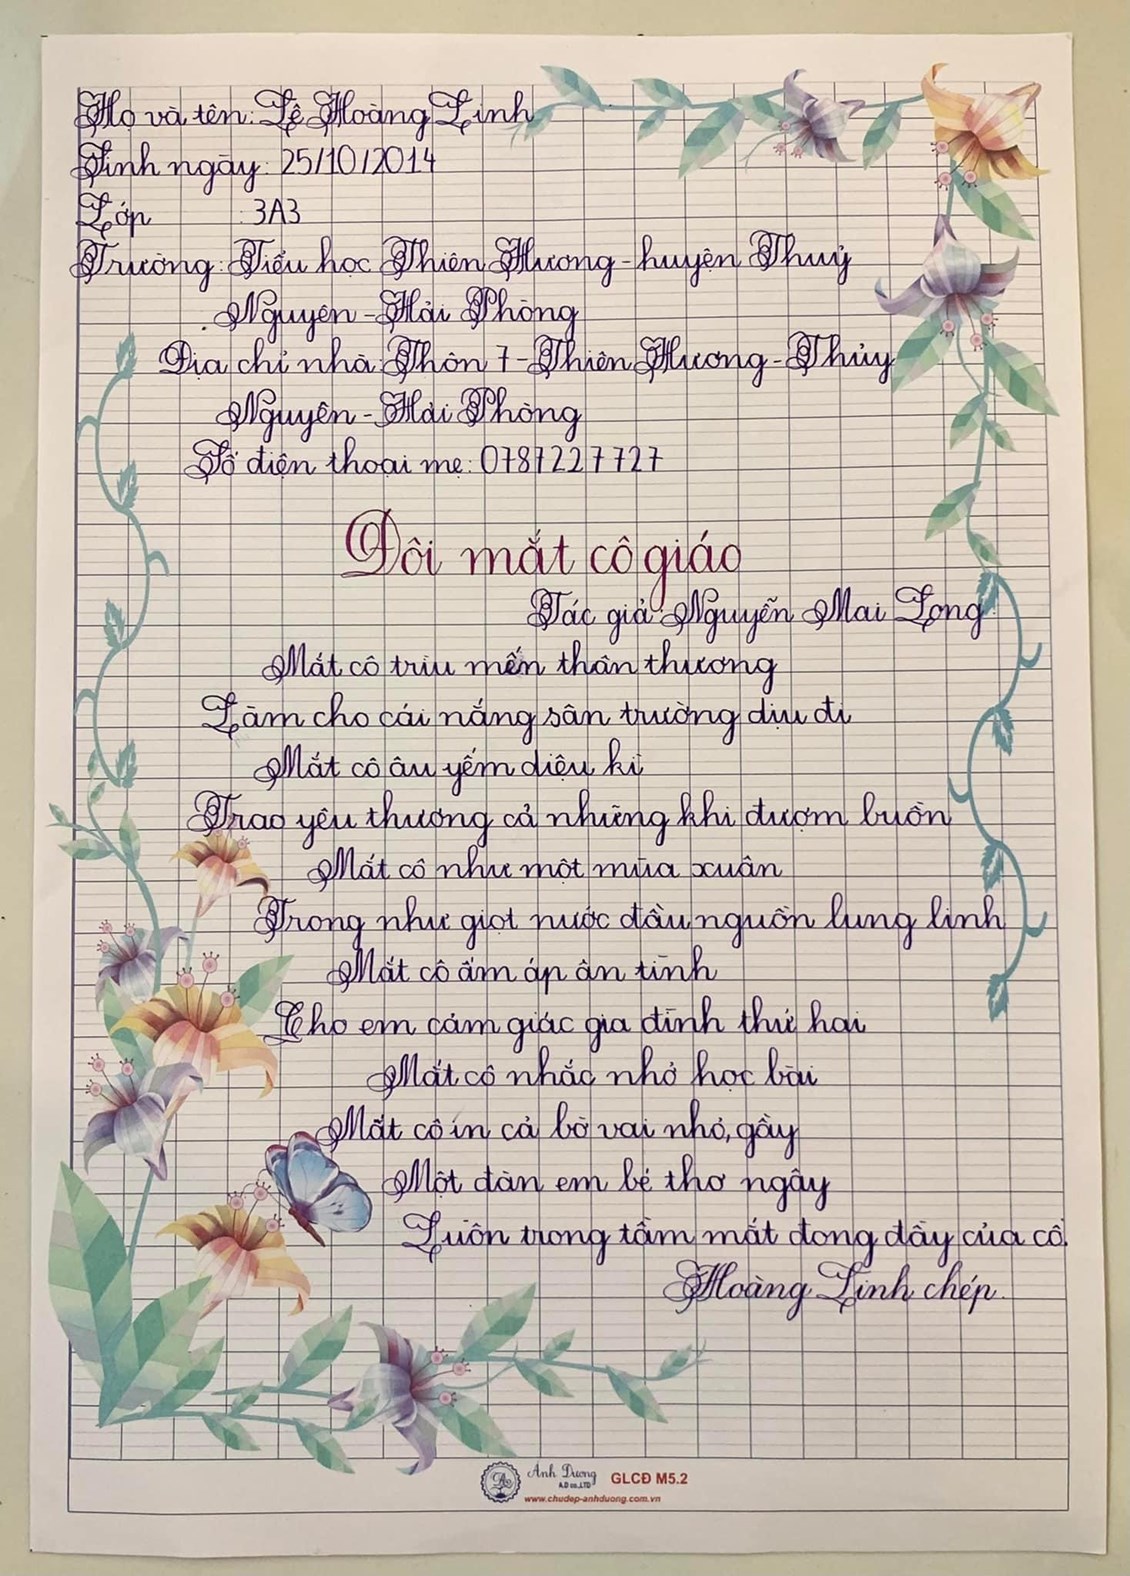 Họ và tên: Lê Hoàng Linh
Sinh ngày: 25/10/2014
Lớp : 3A3
Trường: Tiểu học Thiên Hương - huyện Thuỷ
Nguyên - Hải Phòng
Địa chỉ nhà: Thôn 7 - Thiên Hương - Thủy
Nguyên - Hải Phòng
Số điện thoại mẹ: 0787227727
Đôi mắt cô giáo
Tác giả: Nguyễn Mai Long
Mắt cô trìu mến thân thương
Làm cho cái nắng sân trường dịu đi
Mắt cô âu yếm diệu kì
Trao yêu thương cả những khi đượm buồn
Mắt cô như một mùa xuân
Trong như giọt nước đầu nguồn lung linh
Mắt cô ấm áp ân tình
Cho em cảm giác gia đình thứ hai
Mắt cô nhắc nhở học bài
Mắt cô in cả bờ vai nhỏ, gầy
Một đàn em bé thơ ngây
Luôn trong tầm mắt đong đầy của cô.
Hoàng Linh chép.
Ánh Dương GLCĐ M5.2
A.D co.,LTD
www.chudep-anhduong.com.vn